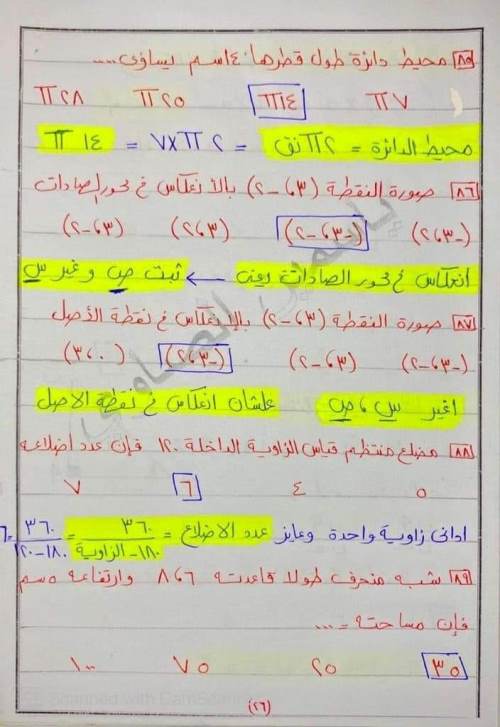 ٨٥ محيط دائرة طول قطرها ١٤سم يساوى....
٧π ١٤π ٢٥π ٢٨π
محيط الدائرة = ٢π نق = ٢π×٧ = ١٤π
٨٦ صورة النقطة (٣، -٢) بالأنعكاس فى محور الصادات
(-٣، ٢) (-٣، -٢) (٣، ٢) (٣، -٢)
أنعكاس فى محور الصادات يعنى ← ثبت ص وغير س
٨٧ صورة النقطة (٣، -٢) بالانعكاس فى نقطة الأصل
(-٣، -٢) (٣، -٢) (-٣، ٢) (٠، ٣)
اغير س، ص علشان انعكاس فى نقطة الاصل
٨٨ مضلع منتظم قياس الزاوية الداخلة ١٢٠ فإن عدد أضلاعه
٥ ٤ ٦ ٧
ادانى زاوية واحدة وعايز عدد الاضلاع = ٣٦٠/١٨٠-الزاوية = ٣٦٠/١٨٠-١٢٠ = ٦
٨٩ شبه منحرف طولا قاعدته ٦، ٨ وارتفاعه ٥سم
فإن مساحته =....
٣٥ ٢٥ ٧٥ ١٠٠
(٢٦)